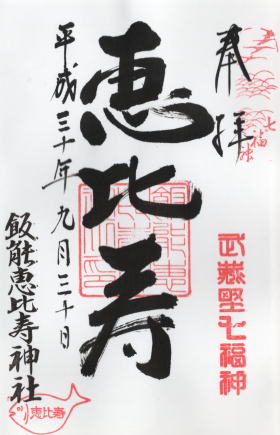 七福神
奉拝
武蔵野七福神
恵比寿
平成三十年九月三十日
飯能恵比寿神社
恵比寿